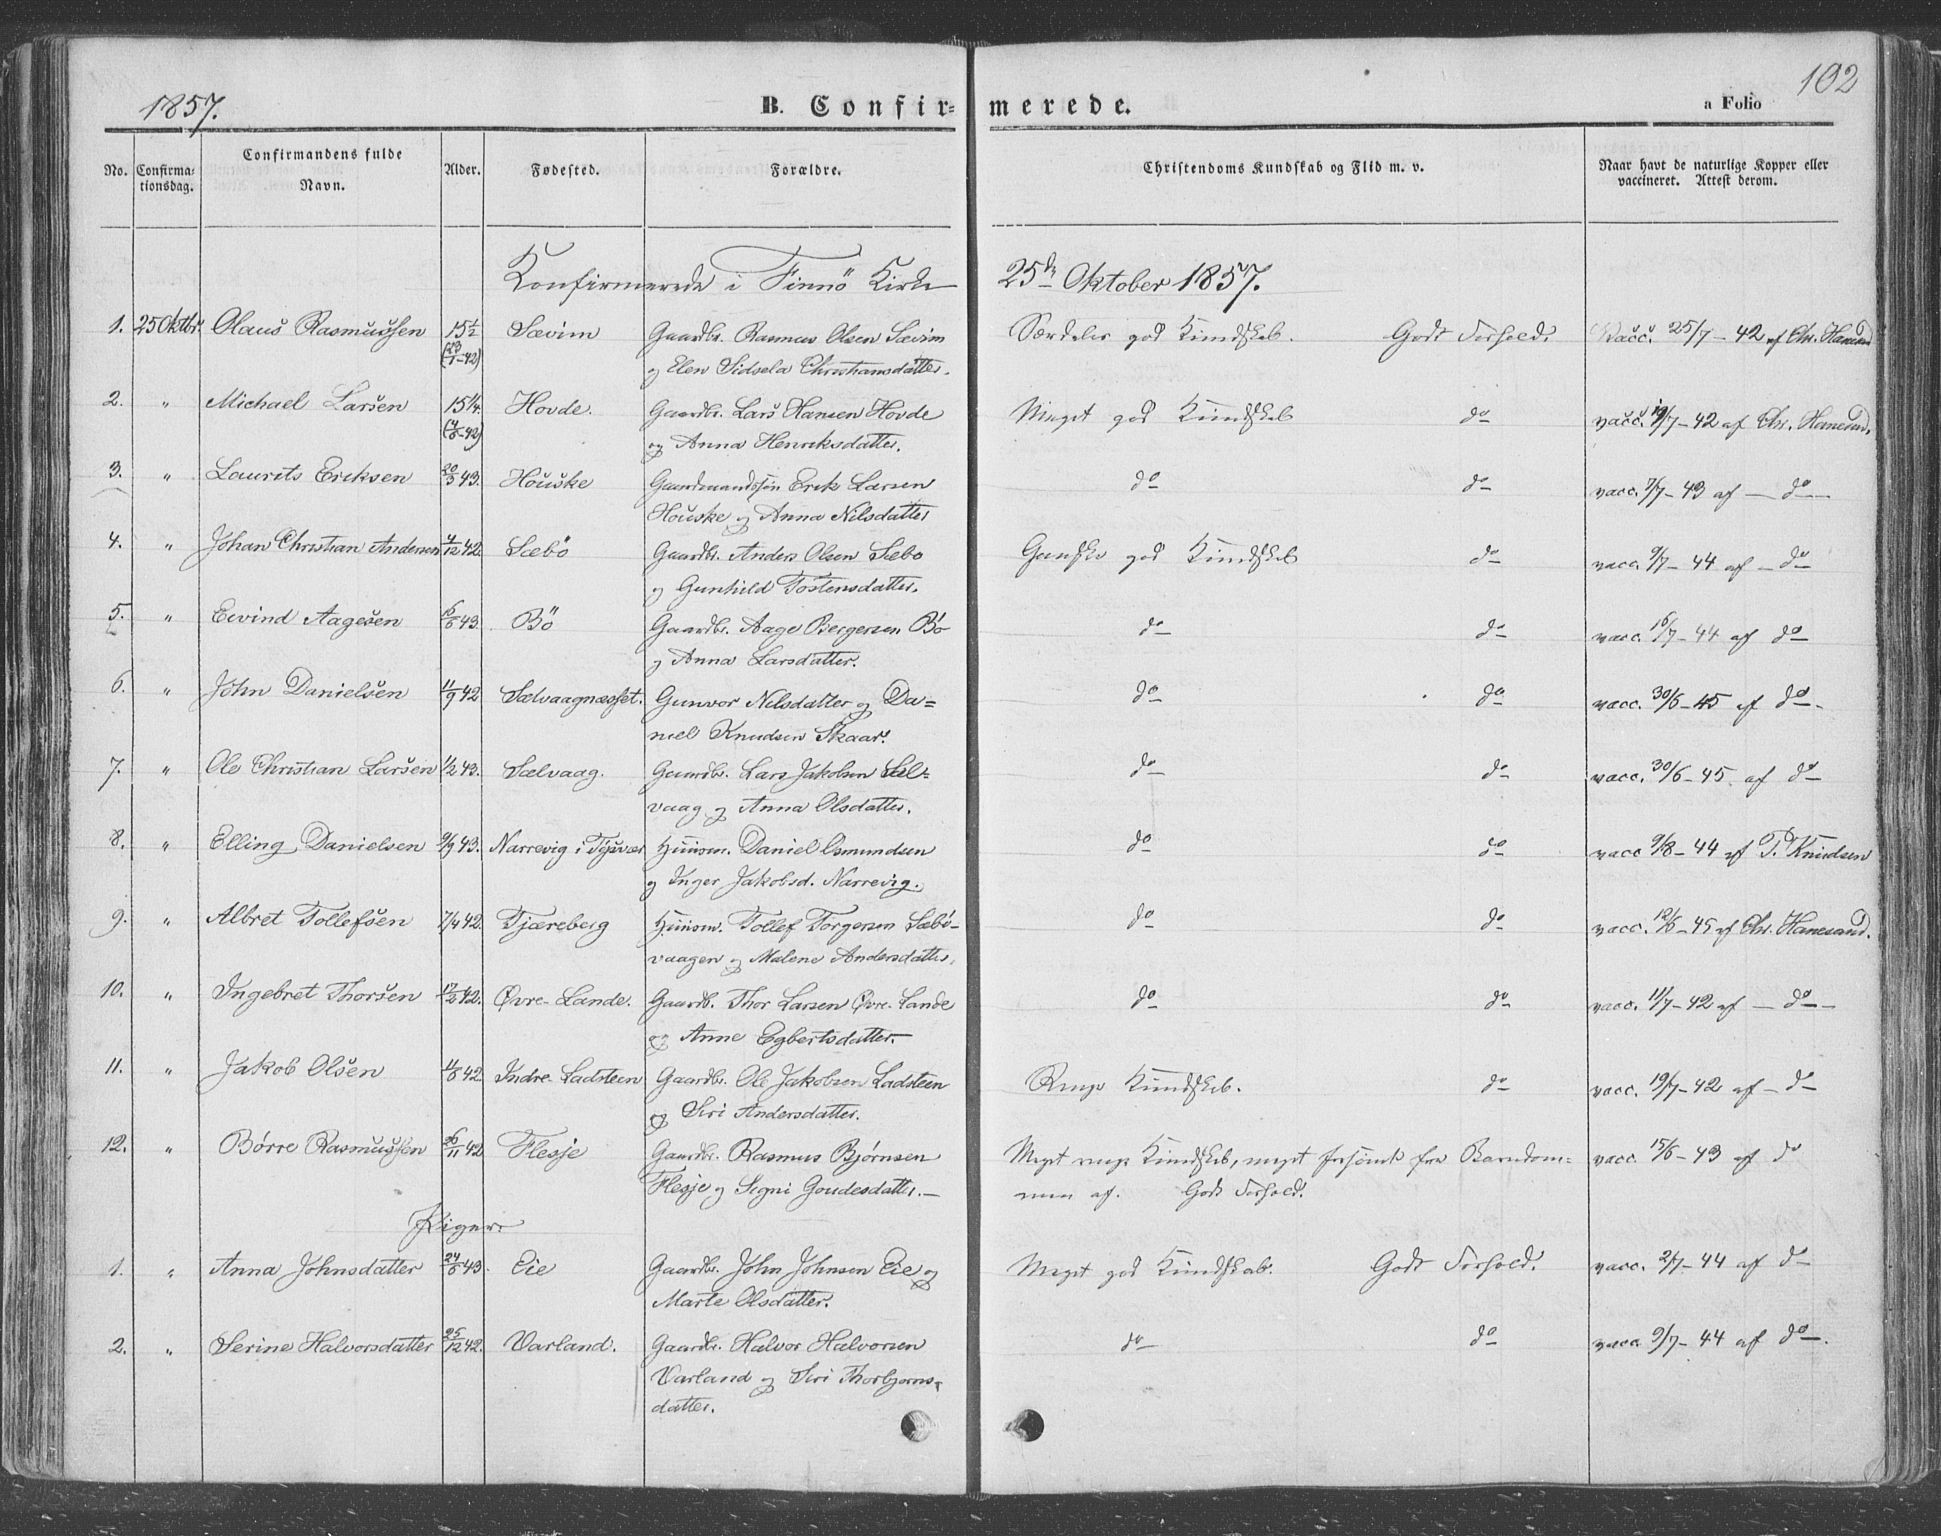 1857.
B. Confirmerede.
102
a Folio
No. Confirmationsdag. Confirmandens fulde Navn. Alder. Fødested. Forældre. Christendoms Kundskab og Flid m. v. Naar havt de naturlige Kopper eller vaccineret. Attest derom.
Konfirmerede i Finnö Kirke 25de Oktober 1857.
1. 25 Oktbr. Olaus Rasmussen 15 1/2 Sævim Gaardbr. Rasmus Olsen Sævim Særdeles god Kundskab. Godt Forhold. Vacc. 25/7-42 af Chr. Hanesand
(23/1-42) og Elen Sidsela Christiansdatter.
2. " Michael Larsen 15 1/4. Hovde. Gaardbr. Lars Hansen Hovde Meget god Kundskab do vacc. 19/7-42 af Chr. Hanesand.
og Anna Henriksdatter.
3. " Laurits Eriksen 20/3 43. Houske Gaardmandssøn Erik Larsen do do vacc. 7/7-43 af — do —
Houske og Anna Nilsdatter
4. " Johan Christian Andersen 4/12 42. Sæbö Gaardbr. Anders Olsen Sæbo Ganske god Kundskab do vacc. 9/7-44 af — do
og Gunhild Tostensdatter.
5. " Eivind Aagesen 16/6 43. Bö Gaardbr. Aage Bergersen Bö do do vacc. 16/7-44 af do
og Anna Larsdatter.
6. " John Danielsen 11/9 42 Sælvaagnæsset. Gunvor Nilsdatter og Da= do do vacc. 30/6-45 af do.
niel Knudsen Skaar.
7. " Ole Christian Larsen 1/2 43. Sælvaag. Gaardbr. Lars Jakobsen Sæl= do do vacc. 30/6-45 af do
vaag og Anna Olsdatter.
8. " Elling Danielsen 9/9 43. Narrevig i Tysvær Huusm. Daniel Osmundsen do do vacc 9/8-44 af T. Knudsen
og Inger Jakobsd. Narrevig.
9. " Albret Tollefsen 7/4 42. Tjæreberg Huusm. Tollef Torgersen Sæbö- do do vacc. 12/6-45 af Chr. Hanesand.
vaagen og Malene Andersdatter.
10. " Ingebret Thorsen 17/2 42. Øvre-Lande. Gaardb. Thor Larsen Øvre-Lande do do vacc. 11/7-42 af — do —
og Anne Egbertsdatter.
11. " Jakob Olsen 11/8 42. Indre-Ladsteen Gaardbr. Ole Jakobsen Ladsteen Ringe Kundskab. do vacc. 19/7-42 af — do
og Siri Andersdatter.
12. " Børre Rasmussen 26/11 42 Flesje Gaardbr. Rasmus Bjørnsen Meget ringe Kundskab, meget forsömt fra Barndom= vacc. 15/6-43 af do
Flesje og Signi Goudesdatter. — men af. Godt Forhold.
Piger
1. " Anna Johnsdatter 24/6 43. Eie Gaardbr. John Johnsen Eie og Meget god Kundskab. Godt Forhold. vacc. 2/7-44 af do
Marte Olsdatter.
2. " Serine Halvorsdatter 25/12 42. Varland. Gaardbr. Halvor Halvorsen do do vacc. 9/7-44 af do.
Varland og Siri Thorbjørns=
datter.